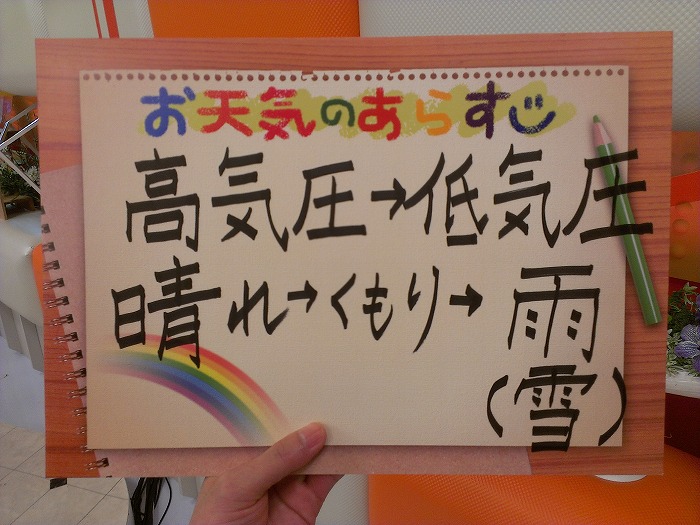 お天気のあらすじ
高気圧→低気圧
晴れ→くもり→雨
(雪)